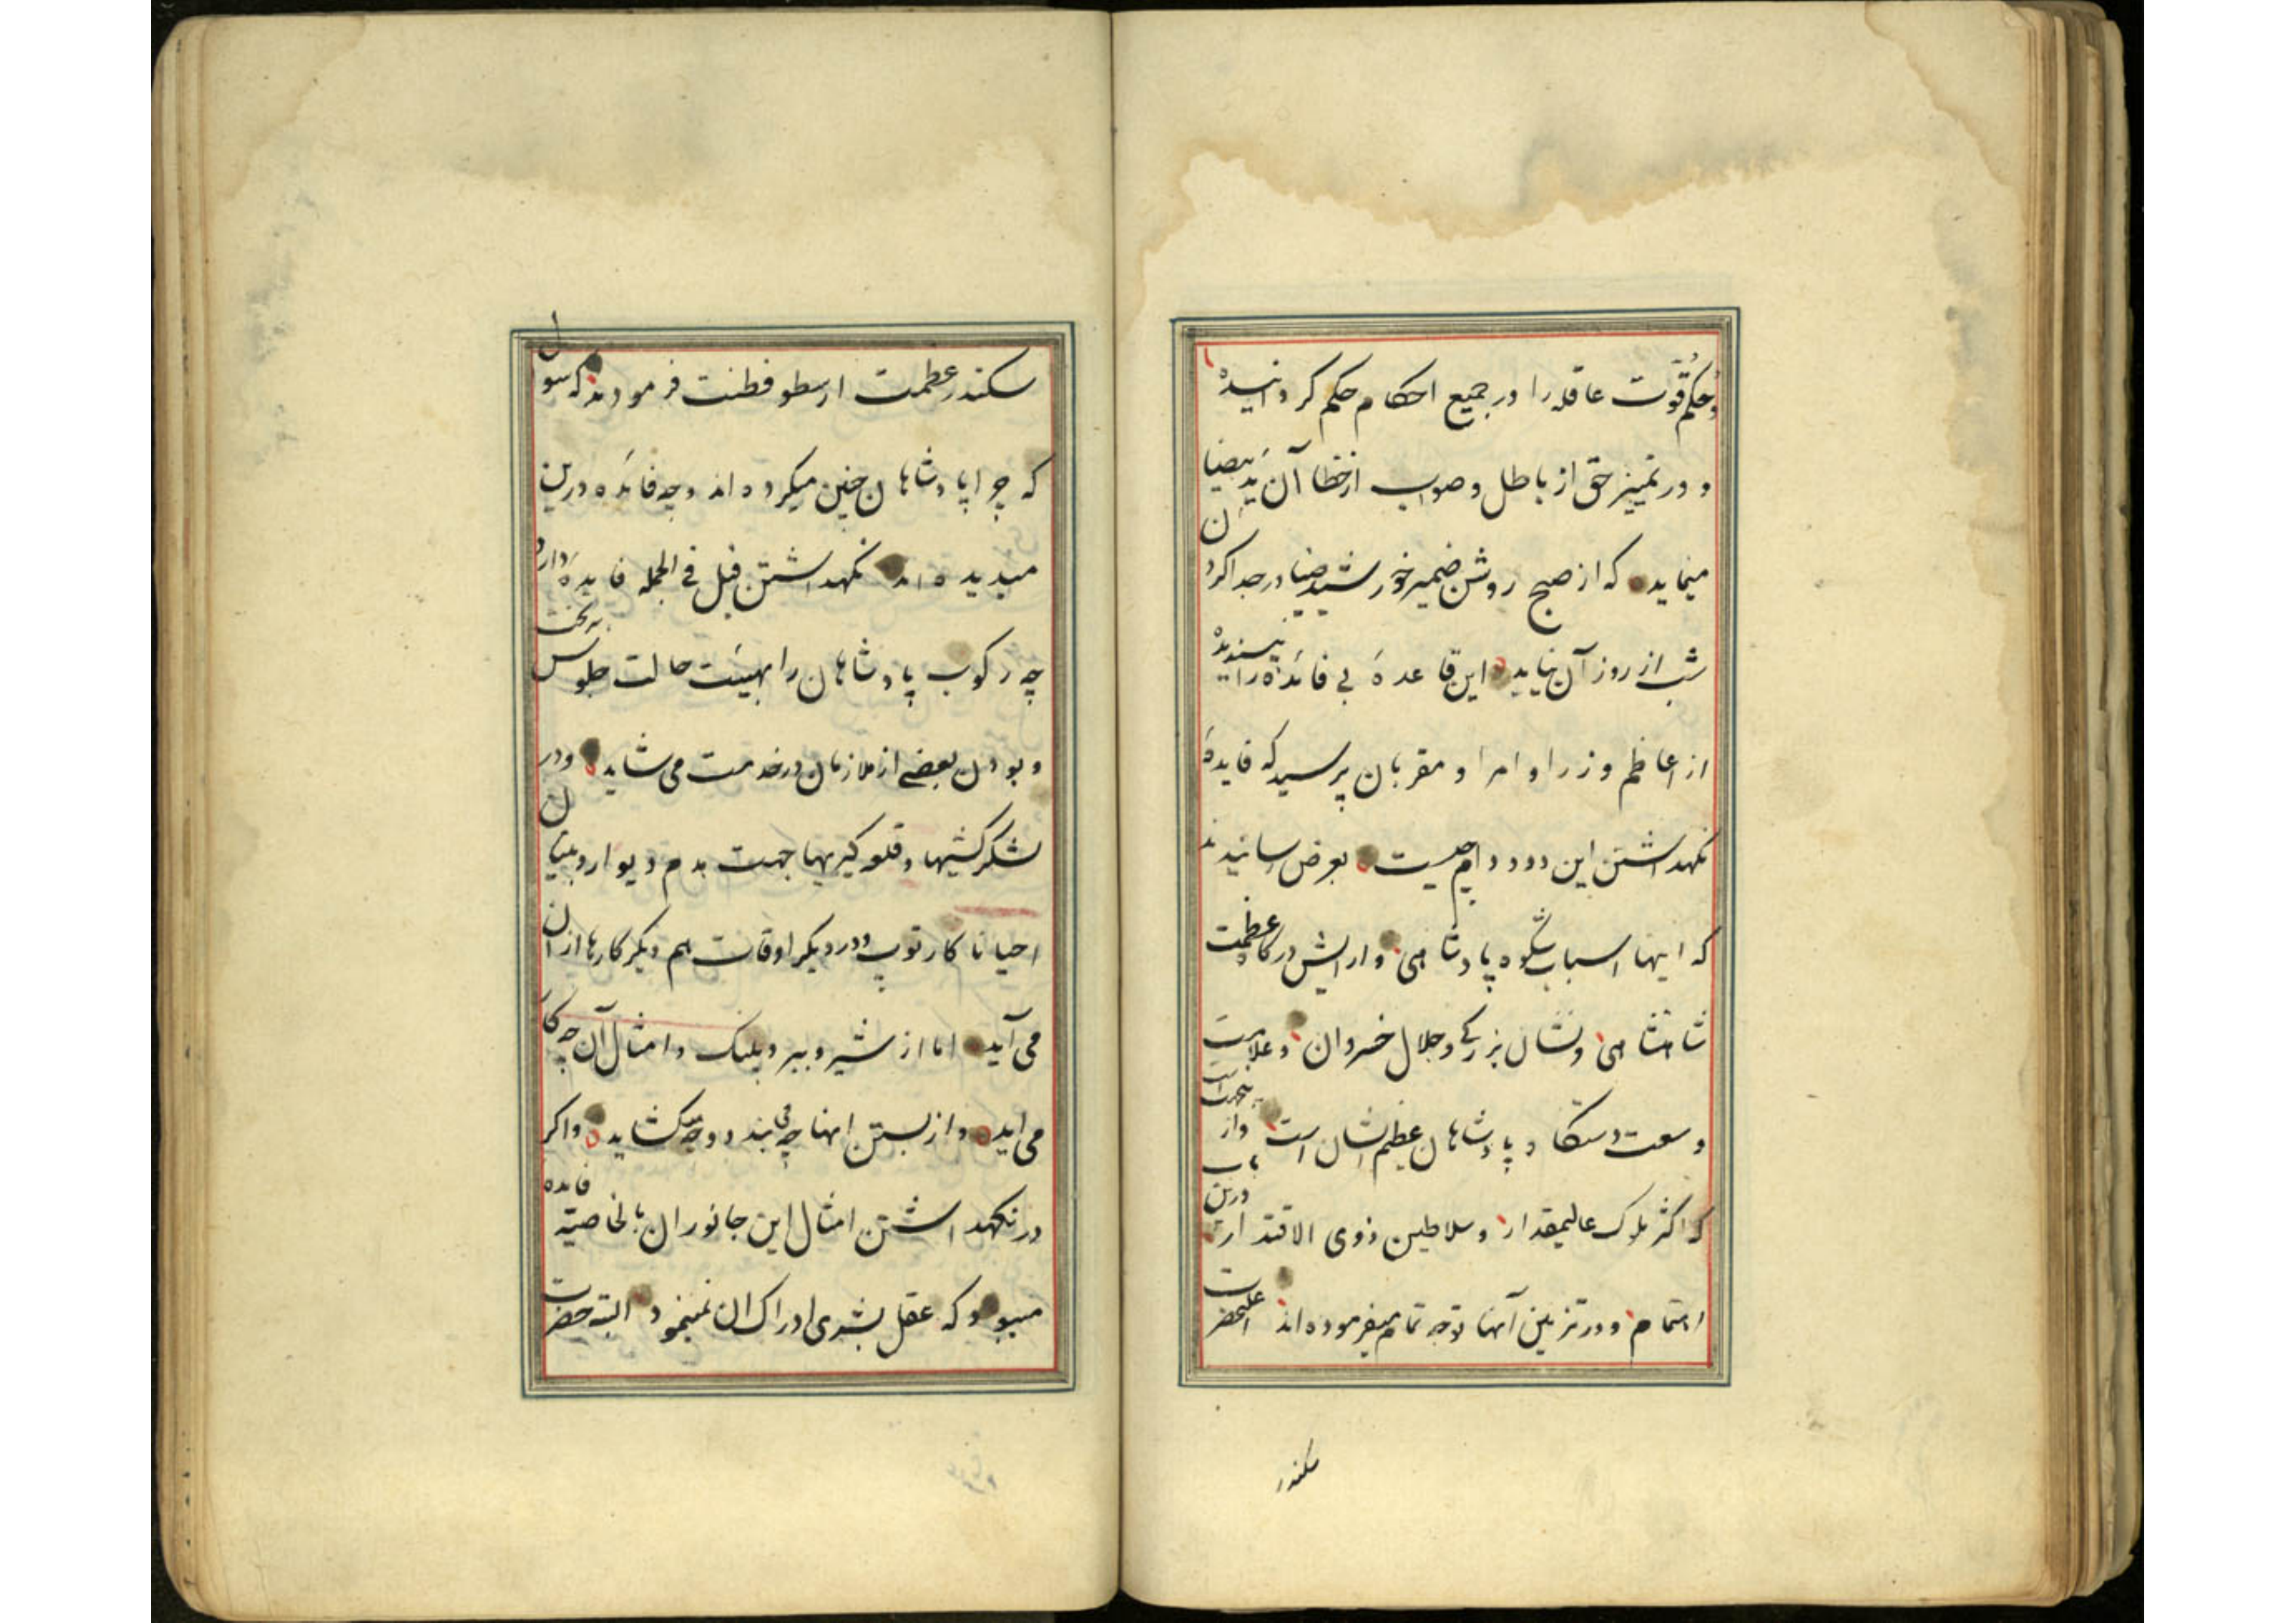 وحکم قوّت عاقله را در جمیع احکام حکم کردانیده
و در تمییز حق از باطل و صواب از خطا آن ید بیضا
مینماید که از صبح روشن ضمیر خورشید ضیا در جدا کردن
شب از روز آن نیاید این قاعدهٔ بی فائده را نپسندیده
از اعاظم وزرا و امرا و مقربان پرسید که فایدهٔ
نکهداشتن این دود و دام چیست بعرض رسانیدند
که اینها اسباب شکوه پادشاهی و آرایش درکاه عظمت
شاهنشاهی و نشان بزرکی و جلال خسروان و علامت
وسعت دستکاه پادشاهان عظیم الشان است و از
که اکثر ملوک عالیمقدار و سلاطین ذوی الاقتدار درین باب
اهتمام و در تزیین آنها توجه تمام میفرموده اند اعلیحضرت
سکندر
سکندر عظمت ارسطو فطنت فرمودند که سؤال
که چرا پادشاهان چنین میکرده اند و چه فائده درین
میدیده اند نکهداشتن فیل فی الجمله فایدهٔ دارد
چه رکوب پادشاهان را بهیئت حالت جلوس بر تخت
و بودن بعضی از ملازمان در خدمت می شاید و در
لشکرکشیها و قلعه کیریها جهت هدم دیوار و بنیان
احیانا کار توپ و در دیکر اوقات هم دیکر کارها از آن
می آید اما از شیر و ببر و پلنک و امثال آن چه کار
می اید و از بستن اینها چه می بندد و چه میکشاید و اکر
در نکهداشتن امثال این جانوران بالخاصیة فایده
میبود که عقل بشری ادراک ان نمینمود البته حضرت